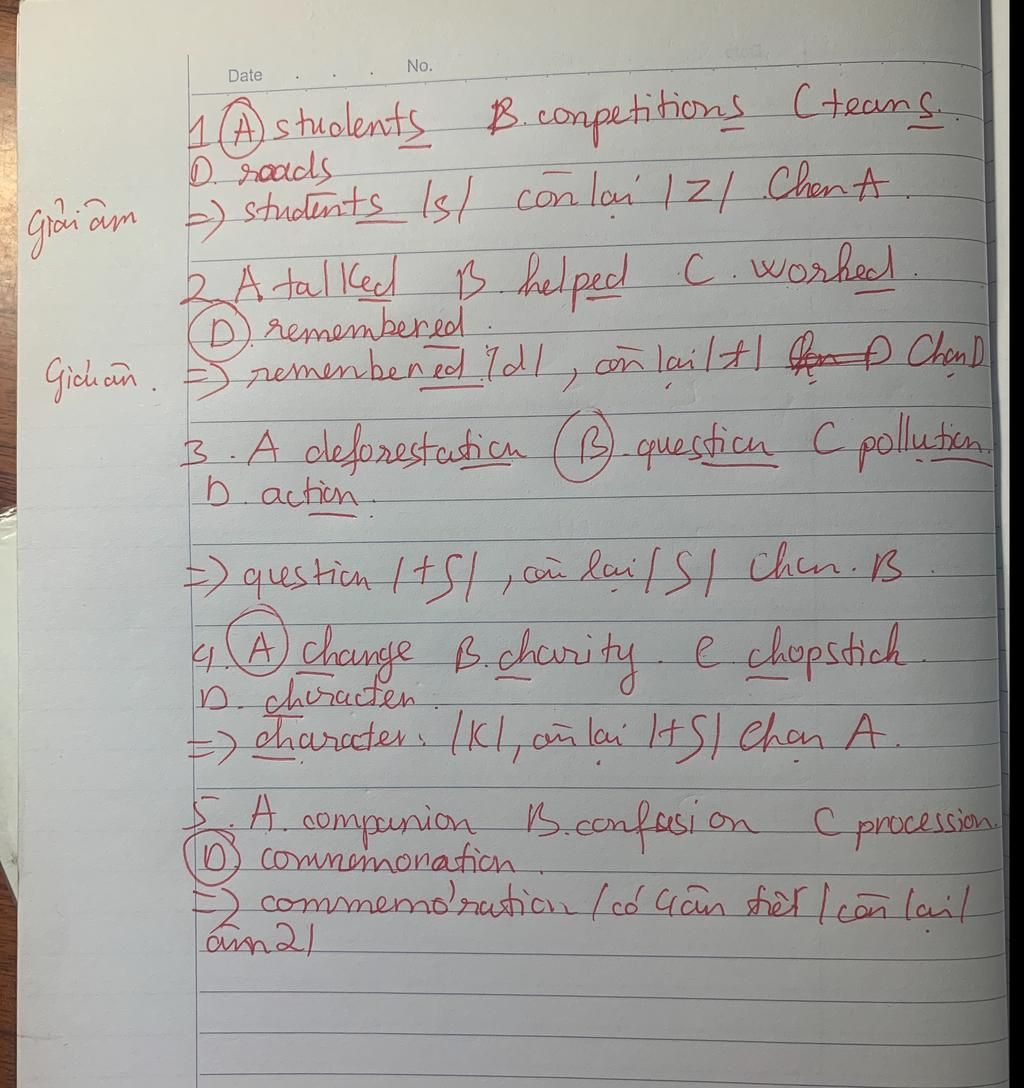 Date . . . No.
1. A students B. conpetitions C teans.
D. roads
Giải âm => students /s/ còn lại /z/ Chọn A.
2. A talked B. helped C. worked.
D. remembered.
Gịch ân. => remenbened /d/, còn lại /t/ Chọn D
3. A deforestation B. question C pollution
D. action.
=> question /tʃ/, còn lại /ʃ/ Chọn. B.
4. A change B. charity. C chopstick.
D. character.
=> character. /k/, còn lại /tʃ/ Chọn A.
5. A. companion B. confusion C procession.
D commemoration.
=> commemo'ration / có 4 ân tiết / còn lại /
âm 2/